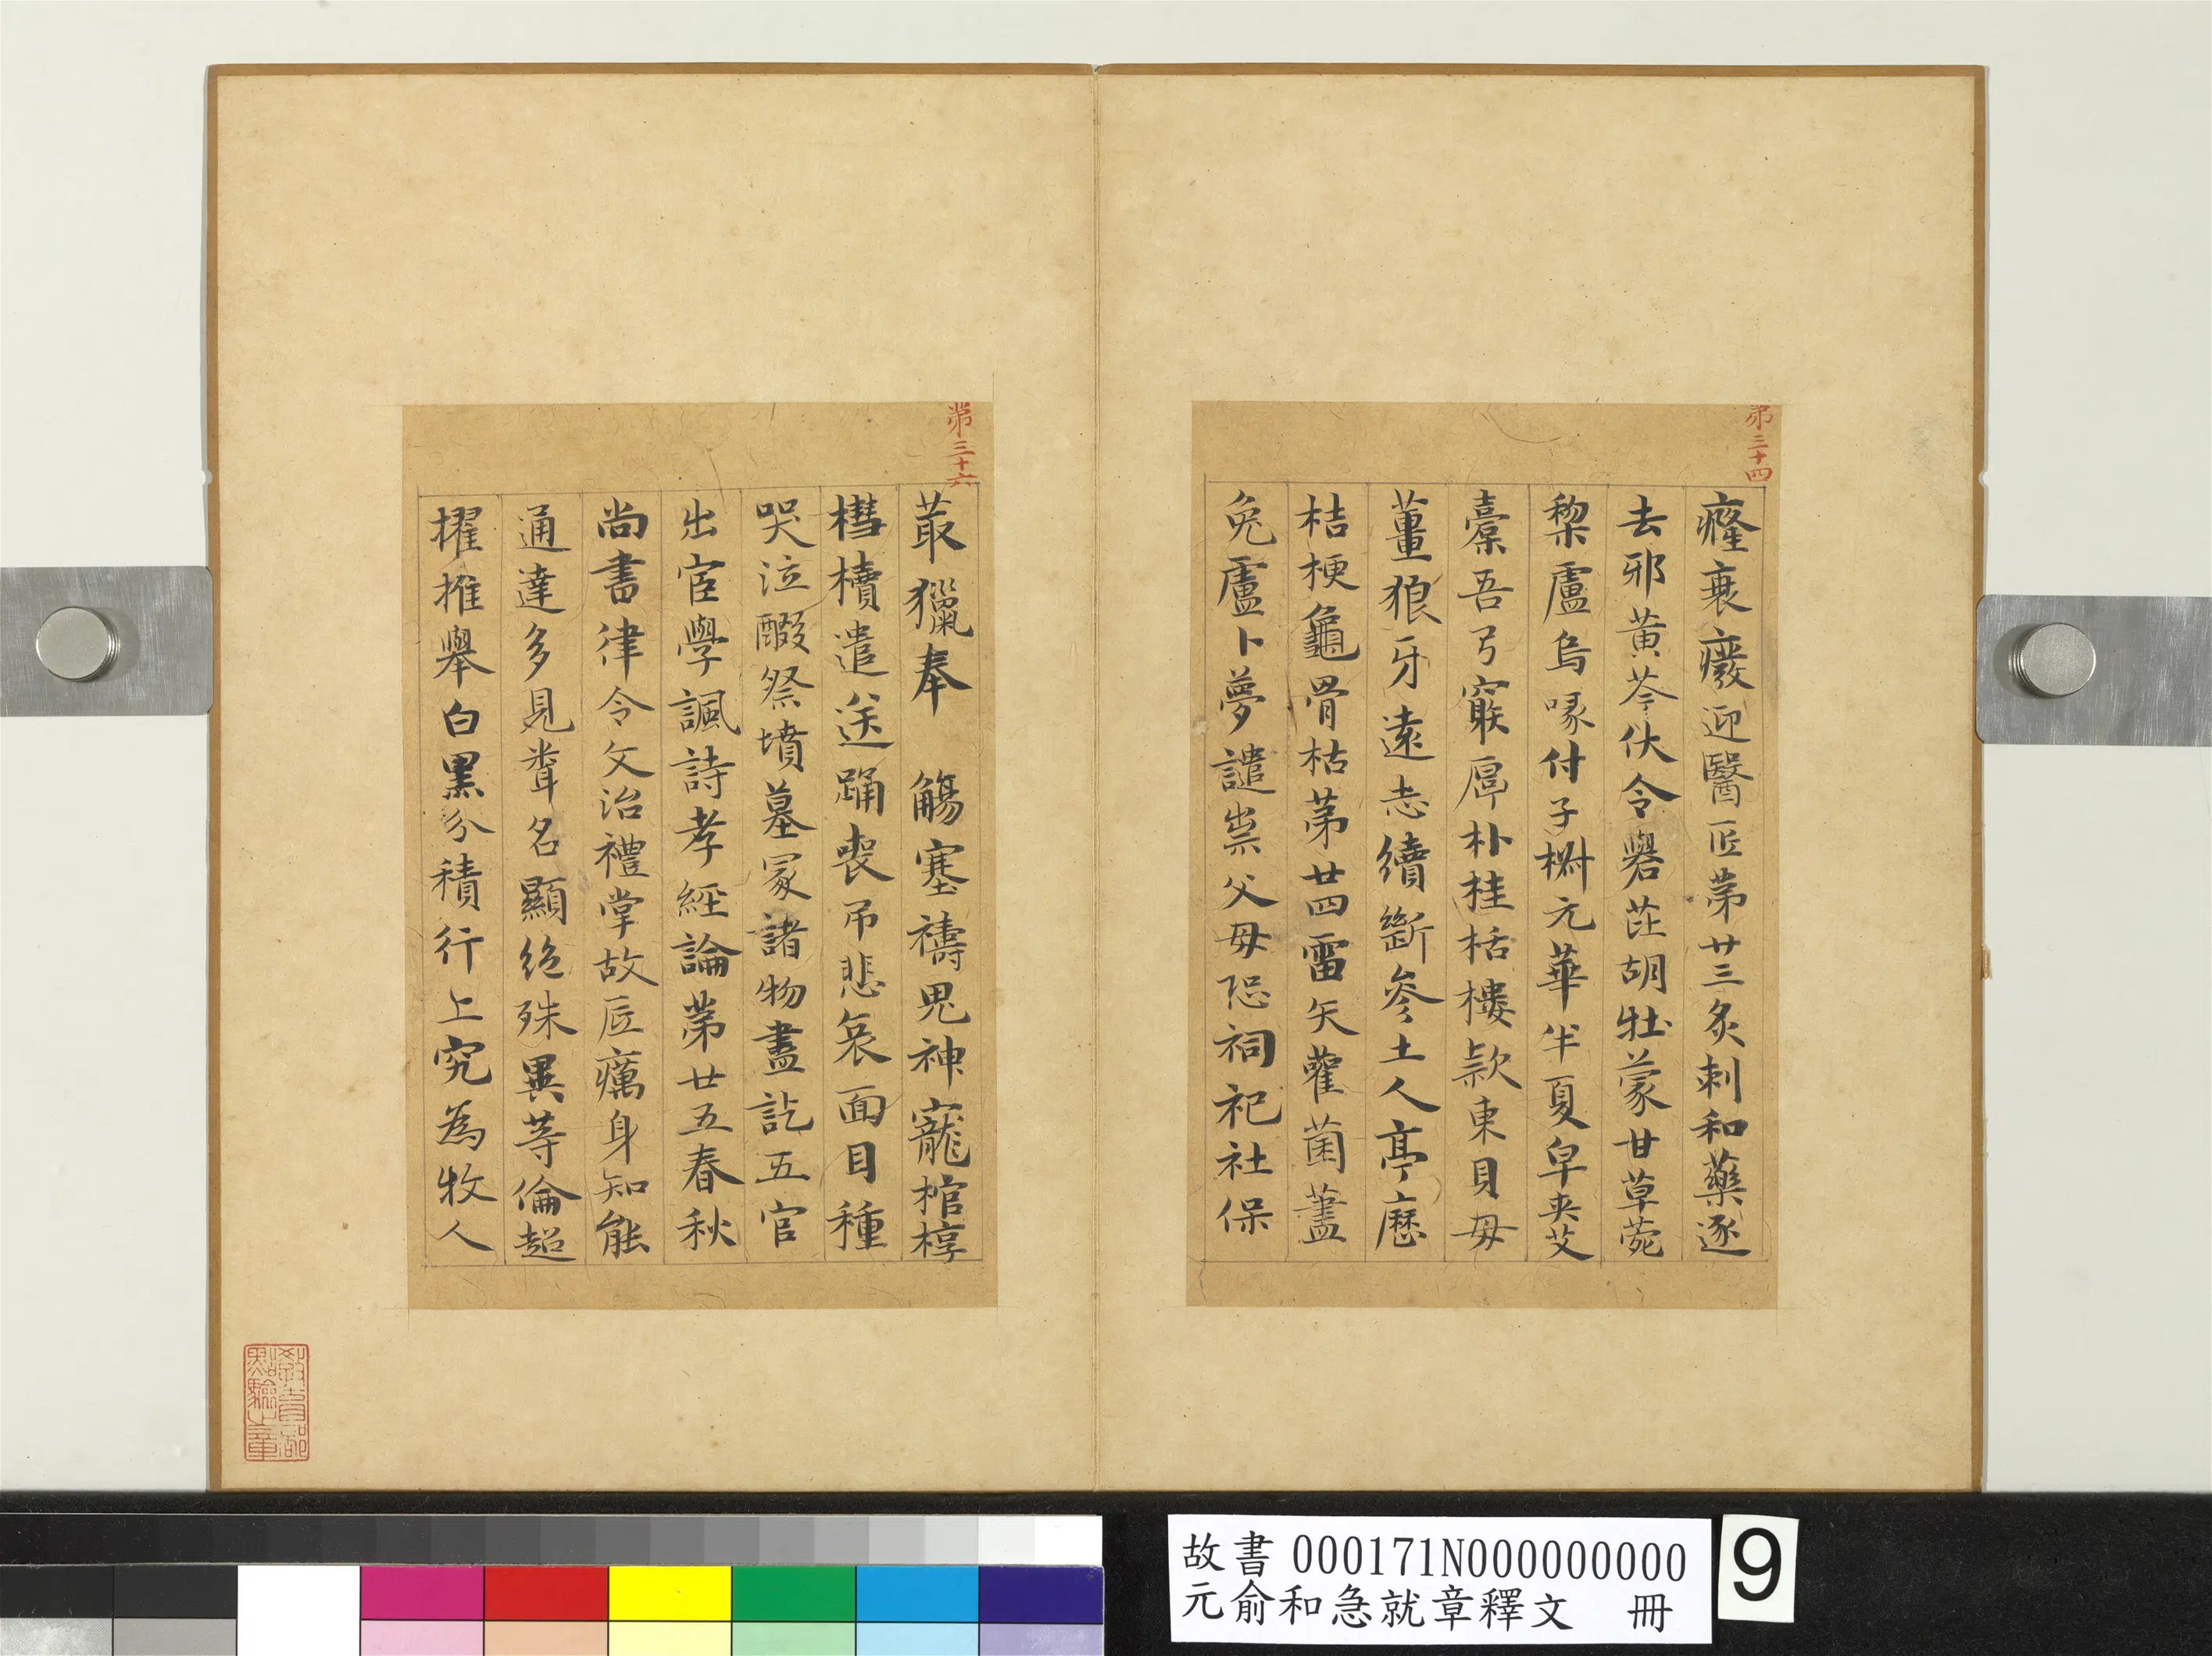 第三十四
癃衰癈迎醫匠第廿三炙刺和藥逐
去邪黃芩伏令礜茈胡牡蒙甘草菀
藜盧烏喙付子椒元華半夏皁莢艾
橐吾弓窮厚朴桂栝樓款東貝母
薑狼牙遠志續斷參土人亭歷
桔梗龜骨枯第廿四雷矢雚菌藎
兔盧卜夢譴祟父母恐祠祀社保
第三十六
菆獵奉 觴塞禱鬼神寵棺椁
槥櫝遣送踊喪吊悲哀面目種
哭泣醊祭墳墓冢諸物盡訖五官
出宦學諷詩孝經論第廿五春秋
尚書律令文治禮掌故底癘身知能
通達多見聞名顯絶殊異等倫超
擢推舉白黑分積行上究為牧人
教育部點驗之章
故書 000171N000000000
元俞和急就章釋文 冊
9